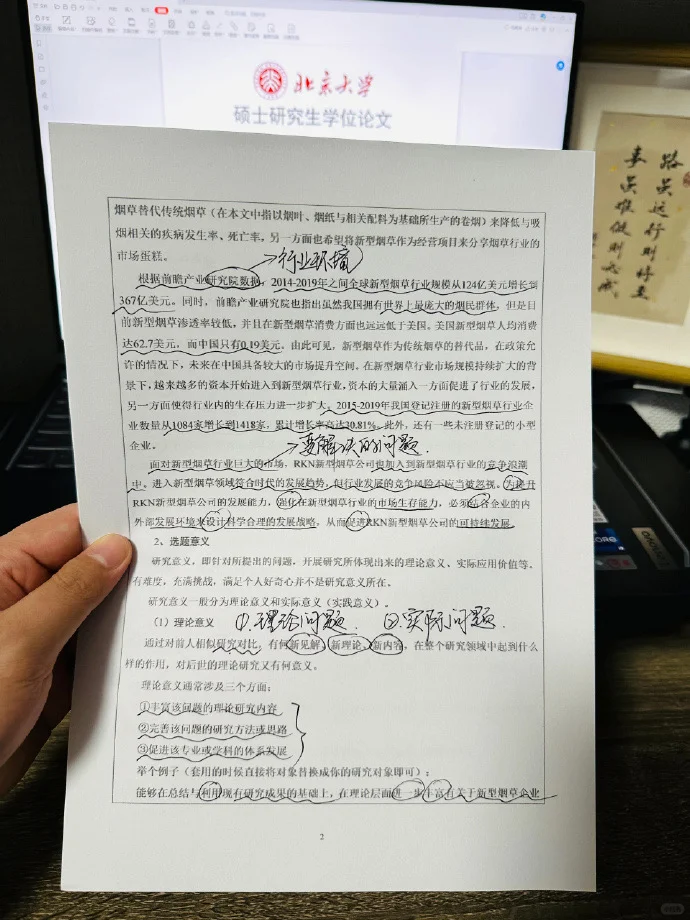 北京大学
硕士研究生学位论文
路虽远行则将至
事虽难做则必成
烟草替代传统烟草（在本文中指以烟叶、烟纸与相关配料为基础所生产的卷烟）来降低与吸
烟相关的疾病发生率、死亡率，另一方面也希望将新型烟草作为经营项目来分享烟草行业的
市场蛋糕。
行业环境
根据前瞻产业研究院数据，2014-2019年之间全球新型烟草行业规模从124亿美元增长到
367亿美元。同时，前瞻产业研究院也指出虽然我国拥有世界上最庞大的烟民群体，但是目
前新型烟草渗透率较低，并且在新型烟草消费方面也远远低于美国。美国新型烟草人均消费
达62.7美元，而中国只有0.19美元。由此可见，新型烟草作为传统烟草的替代品，在政策允
许的情况下，未来在中国具备较大的市场提升空间。在新型烟草行业市场规模持续扩大的背
景下，越来越多的资本开始进入到新型烟草行业，资本的大量涌入一方面促进了行业的发展，
另一方面使得行业内的生存压力进一步扩大。2015-2019年我国登记注册的新型烟草行业企
业数量从1084家增长到1418家，累计增长率高达30.81%。此外，还有一些未注册登记的小型
企业。
要解决的问题.
面对新型烟草行业巨大的市场，RKN新型烟草公司也加入到新型烟草行业的竞争浪潮
中。进入新型烟草领域符合时代的发展趋势，但行业发展的竞争风险不应当被忽视。为提升
RKN新型烟草公司的发展能力，强化在新型烟草行业的市场生存能力，必须结合企业的内
外部发展环境来设计科学合理的发展战略，从而促进RKN新型烟草公司的可持续发展。
2、选题意义
研究意义，即针对所提出的问题，开展研究所体现出来的理论意义、实际应用价值等。
有难度，充满挑战，满足个人好奇心并不是研究意义所在。
研究意义一般分为理论意义和实际意义（实践意义）。
（1）理论意义
①.理论问题. ②.实际问题.
通过对前人相似研究对比，有何新见解、新理论、新内容，在整个研究领域中起到什么
样的作用，对后世的理论研究又有何意义。
理论意义通常涉及三个方面：
①丰富该问题的理论研究内容
②完善该问题的研究方法或思路
③促进该专业或学科的体系发展
举个例子（套用的时候直接将对象替换成你的研究对象即可）：
能够在总结与利用现有研究成果的基础上，在理论层面进一步丰富有关于新型烟草企业
2